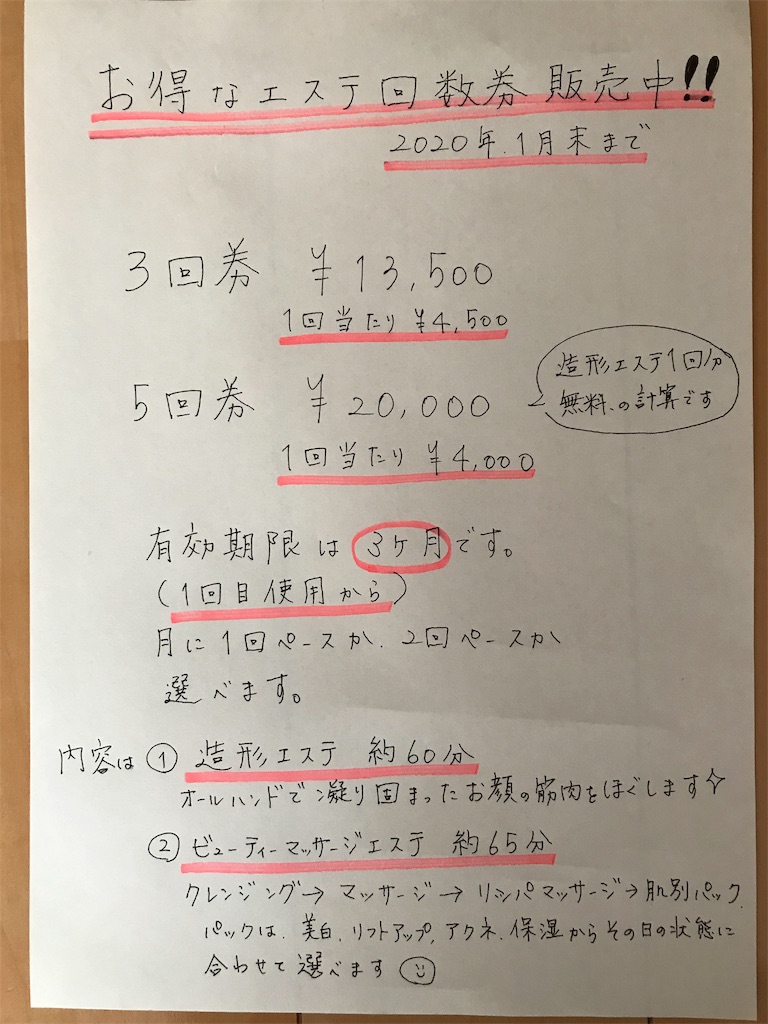 お得なエステ回数券 販売中!!
2020年.1月末まで
3回券 ¥13,500
1回当たり ¥4,500
5回券 ¥20,000
造形エステ1回分
無料、の計算です
1回当たり ¥4,000
有効期限は 3ケ月です。
(1回目使用から)
月に1回ペースか、2回ペースか
選べます。
内容は ① 造形エステ 約60分
オールハンドで凝り固まったお顔の筋肉をほぐします✧
② ビューティーマッサージエステ 約65分
クレンジング→マッサージ→リンパマッサージ→肌別パック
パックは、美白、リフトアップ、アクネ、保湿からその日の状態に
合わせて選べます☺